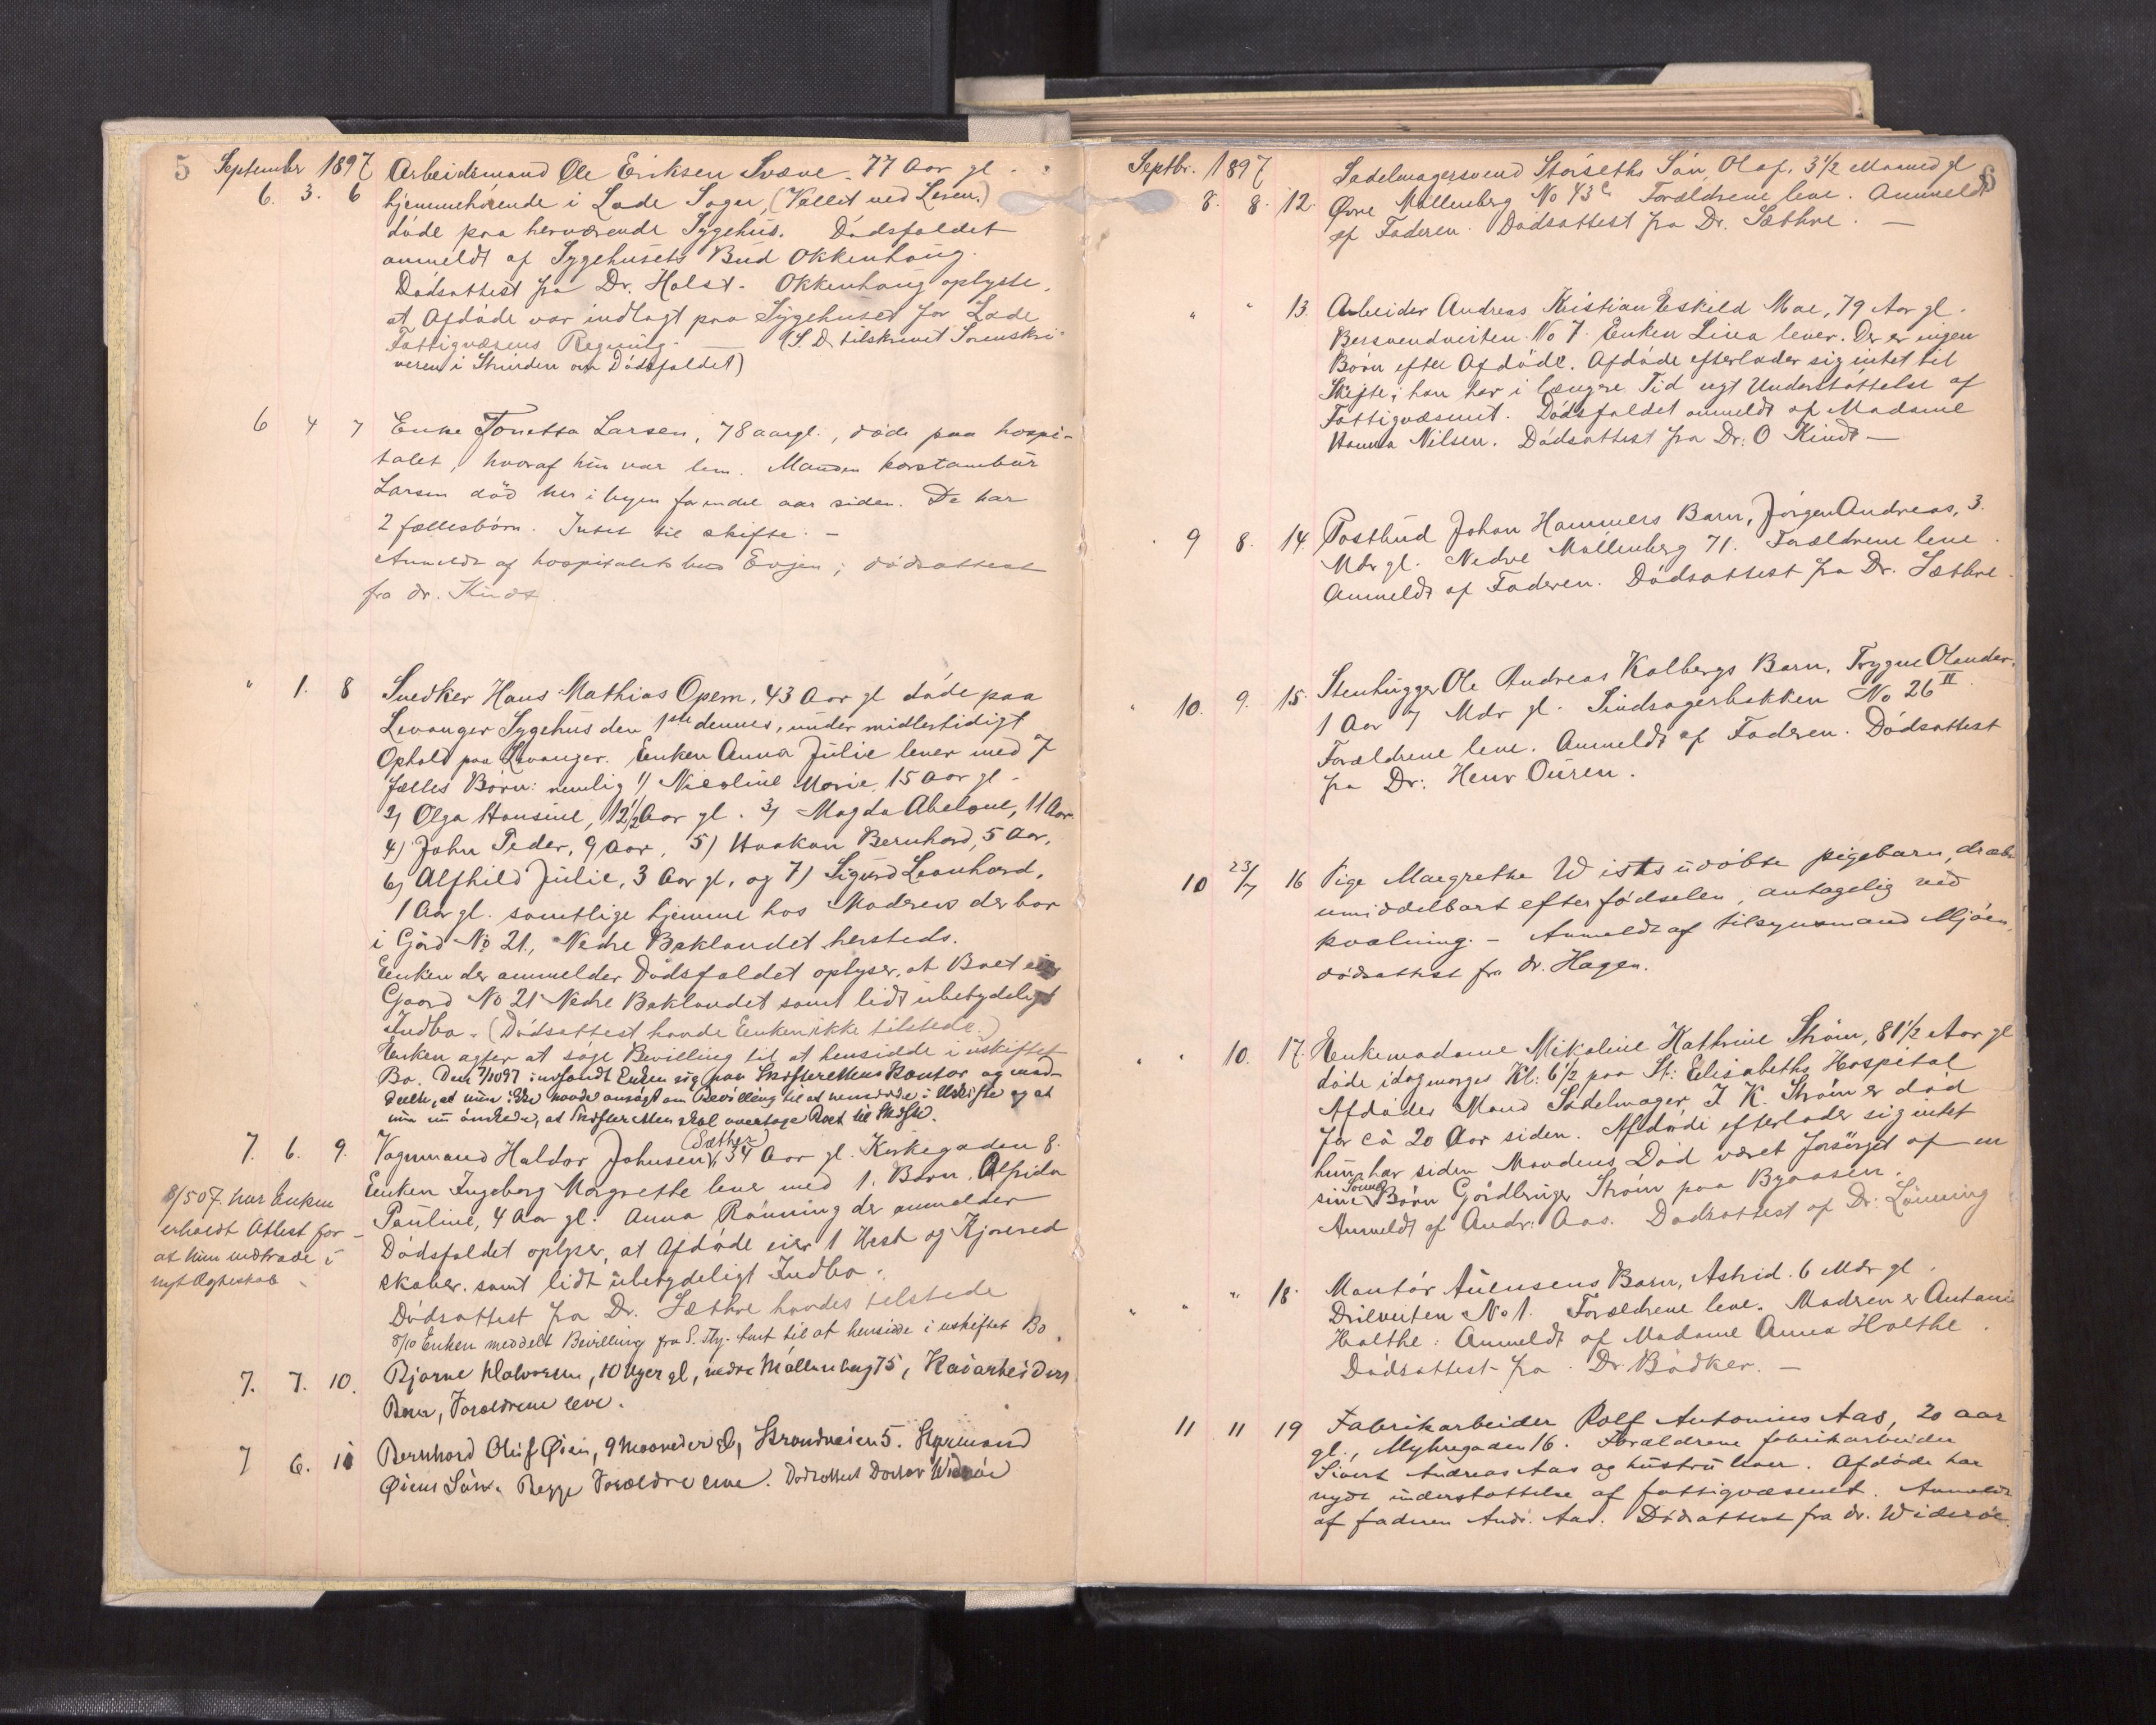 5 September 1897 Arbeidsmand Ole Eriksen Svæve. 77 Aar gl
6. 3. 6 hjemmehørende i Lade Sogn, (Vallet ved Leren.)
døde paa herværende Sygehus. Dødsfaldet
anmeldt af Sygehusets Bud Okkenhaug.
Dødsattest fra Dr. Holst. Okkenhaug oplyste,
at Afdøde var indlagt paa Sygehuset for Lade
Fattigvæsens Regning. — (S. D. tilskrevet Sorenskri-
veren i Strinden om Dødsfaldet)
6 4 7 Enke Tonetta Larsen, 78 aargl., døde paa hospi-
talet, hvoraf hun var lem. Manden korstambur
Larsen død her i byen for endel aar siden. De har
2 fællesbørn. Intet til skifte. —
Anmeldt af hospitalets bud Evjen; dødsattest
fra dr. Kindt.
" 1. 8 Snedker Hans Mathias Opem, 43 Aar gl døde paa
Levanger Sygehus den 1ste dennes, under midlertidigt
Ophold paa Levanger. Enken Anna Julie lever med 7
fælles Børn: nemlig 1) Nicoline Marie, 15 Aar gl -
2) Olga Hansine, 12 1/2 Aar gl. 3) Magda Abelone, 11 Aar
4) John Peder, 9 Aar, 5) Haakon Bernhard, 5 Aar,
6) Alfhild Julie, 3 Aar gl, og 7) Sigurd Leonhard,
1 Aar gl. samtlige hjemme hos Moderen der bor
i Gård No 21, Nedre Baklandet hersteds.
Enken der anmelder Dødsfaldet oplyser, at Boet eier
Gaard No 21 Nedre Baklandet samt lidt ubetydeligt
Indbo. (Dødsattest havde Enken ikke tilstede.)
Enken agter at søge Bevilling til at hensidde i uskiftet
Bo. Den 7/10 97 indfandt Enken sig paa Skifterettens Kontor og med-
deelte, at hun ikke havde ansøgt om Bevilling til at hensidde i Uskifte og at
hun nu ønskede, at Skifteretten skal overtage Boet til Skifte.
7. 6. 9. Vognmand Haldor Johnsen (Sæther), 34 Aar gl. Kirkegaden 8.
Enken Ingeborg Margrethe lever med 1. Barn, Alfrida
Pauline, 4 Aar gl: Anna Rønning der anmelder
Dødsfaldet oplyser, at Afdøde eier 1 Hest og Kjøreredskaber. samt lidt ubetydeligt Indbo.
Dødsattest fra Dr. Sæthre havdes tilstede
8/10 Enken meddelt Bevilling fra S. Myn. til at hensidde i uskiftet Bo.
8/5 07. har Enken
erholdt Attest for
at hun indtræde i
nyt Ægteskab
7. 7. 10. Bjarne Halvorsen, 10 Uger gl, nedre Møllenberg 75, Kaiarbeiders
Barn, Forældrene leve.
7 6. 11 Bernhard Oluf Øien, 9 Maaneder gl, Strandveien 5. Styrmand
Øiens Søn. Begge Forældre leve. Dødsattest Doktor Widerøe
Septbr. 1897 6
8. 8. 12. Sadelmagersvend Størseths Søn, Olaf, 3 1/2 Maaned gl
Øvre Møllenberg No 43c Forældrene leve. Anmeldt
af Faderen. Dødsattest fra Dr. Sæthre. —
" " 13. Arbeider Andreas Kristian Eskild Moe, 79 Aar gl.
Bersvendveiten No 7. Enken Lina lever. Der er ingen
Børn efter Afdøde. Afdøde efterlader sig intet til
Skifte; han har i længere Tid nydt Understøttelse af
Fattigvæsenet. Dødsfaldet anmeldt af Madame
Hanna Nilsen. Dødsattest fra Dr: O Kindt —
9 8. 14. Postbud Johan Hammers Barn, Jørgen Andreas, 3.
Mdr gl. Nedre Møllenberg 71. Forældrene leve.
Anmeldt af Faderen. Dødsattest fra Dr. Sæthre.
" 10. 9. 15. Stenhugger Ole Andreas Kolbergs Barn, Trygve Olander.
1 Aar 7 Mdr gl. Tindsagerbakken No 26 II
Forældrene leve. Anmeldt af Faderen. Dødsattest
fra Dr: Henr Ouren.
10 23/7 16 Pige Margrethe Wists udøbte pigebarn, dræbt
umiddelbart efter fødselen, antagelig ved
kvælning. — Anmeldt af tilsynsmand Mjøen,
dødsattest fra dr. Hagen.
" " 10. 17. Enkemadame Mikoline Kathrine Strøm, 81 1/2 Aar gl
døde idagmorges Kl: 6 1/2 paa St: Elisabeths Hospital
Afdødes Mand Sadelmager J. K. Strøm er død
for ca 20 Aar siden. Afdøde efterlader sig intet
hun har siden Mandens Død været forsørget af en
sine Børn Sønnen Gårdbruger Strøm paa Byaasen.
Anmeldt af Andr: Aas. Dødsattest af Dr: Lønning
" " " 18. Montør Auensens Barn, Astrid. 6 Mdr gl.
Drilveiten No 1. Forældrene leve. Modren er Antonie
Holthe. Anmeldt af Madame Anna Holthe.
Dødsattest fra Dr. Bødker. —
11 11 19 Fabrikarbeider Rolf Antonius Aas, 20 aar
gl., Myhregaden 16. Forældrene fabrikarbeider
Sivert Andreas Aas og hustru lever. Afdøde har
nydt understøttelse af fattigvæsenet. Anmeldt
af faderen Andr. Aas. Dødsattest fra dr. Widerøe.